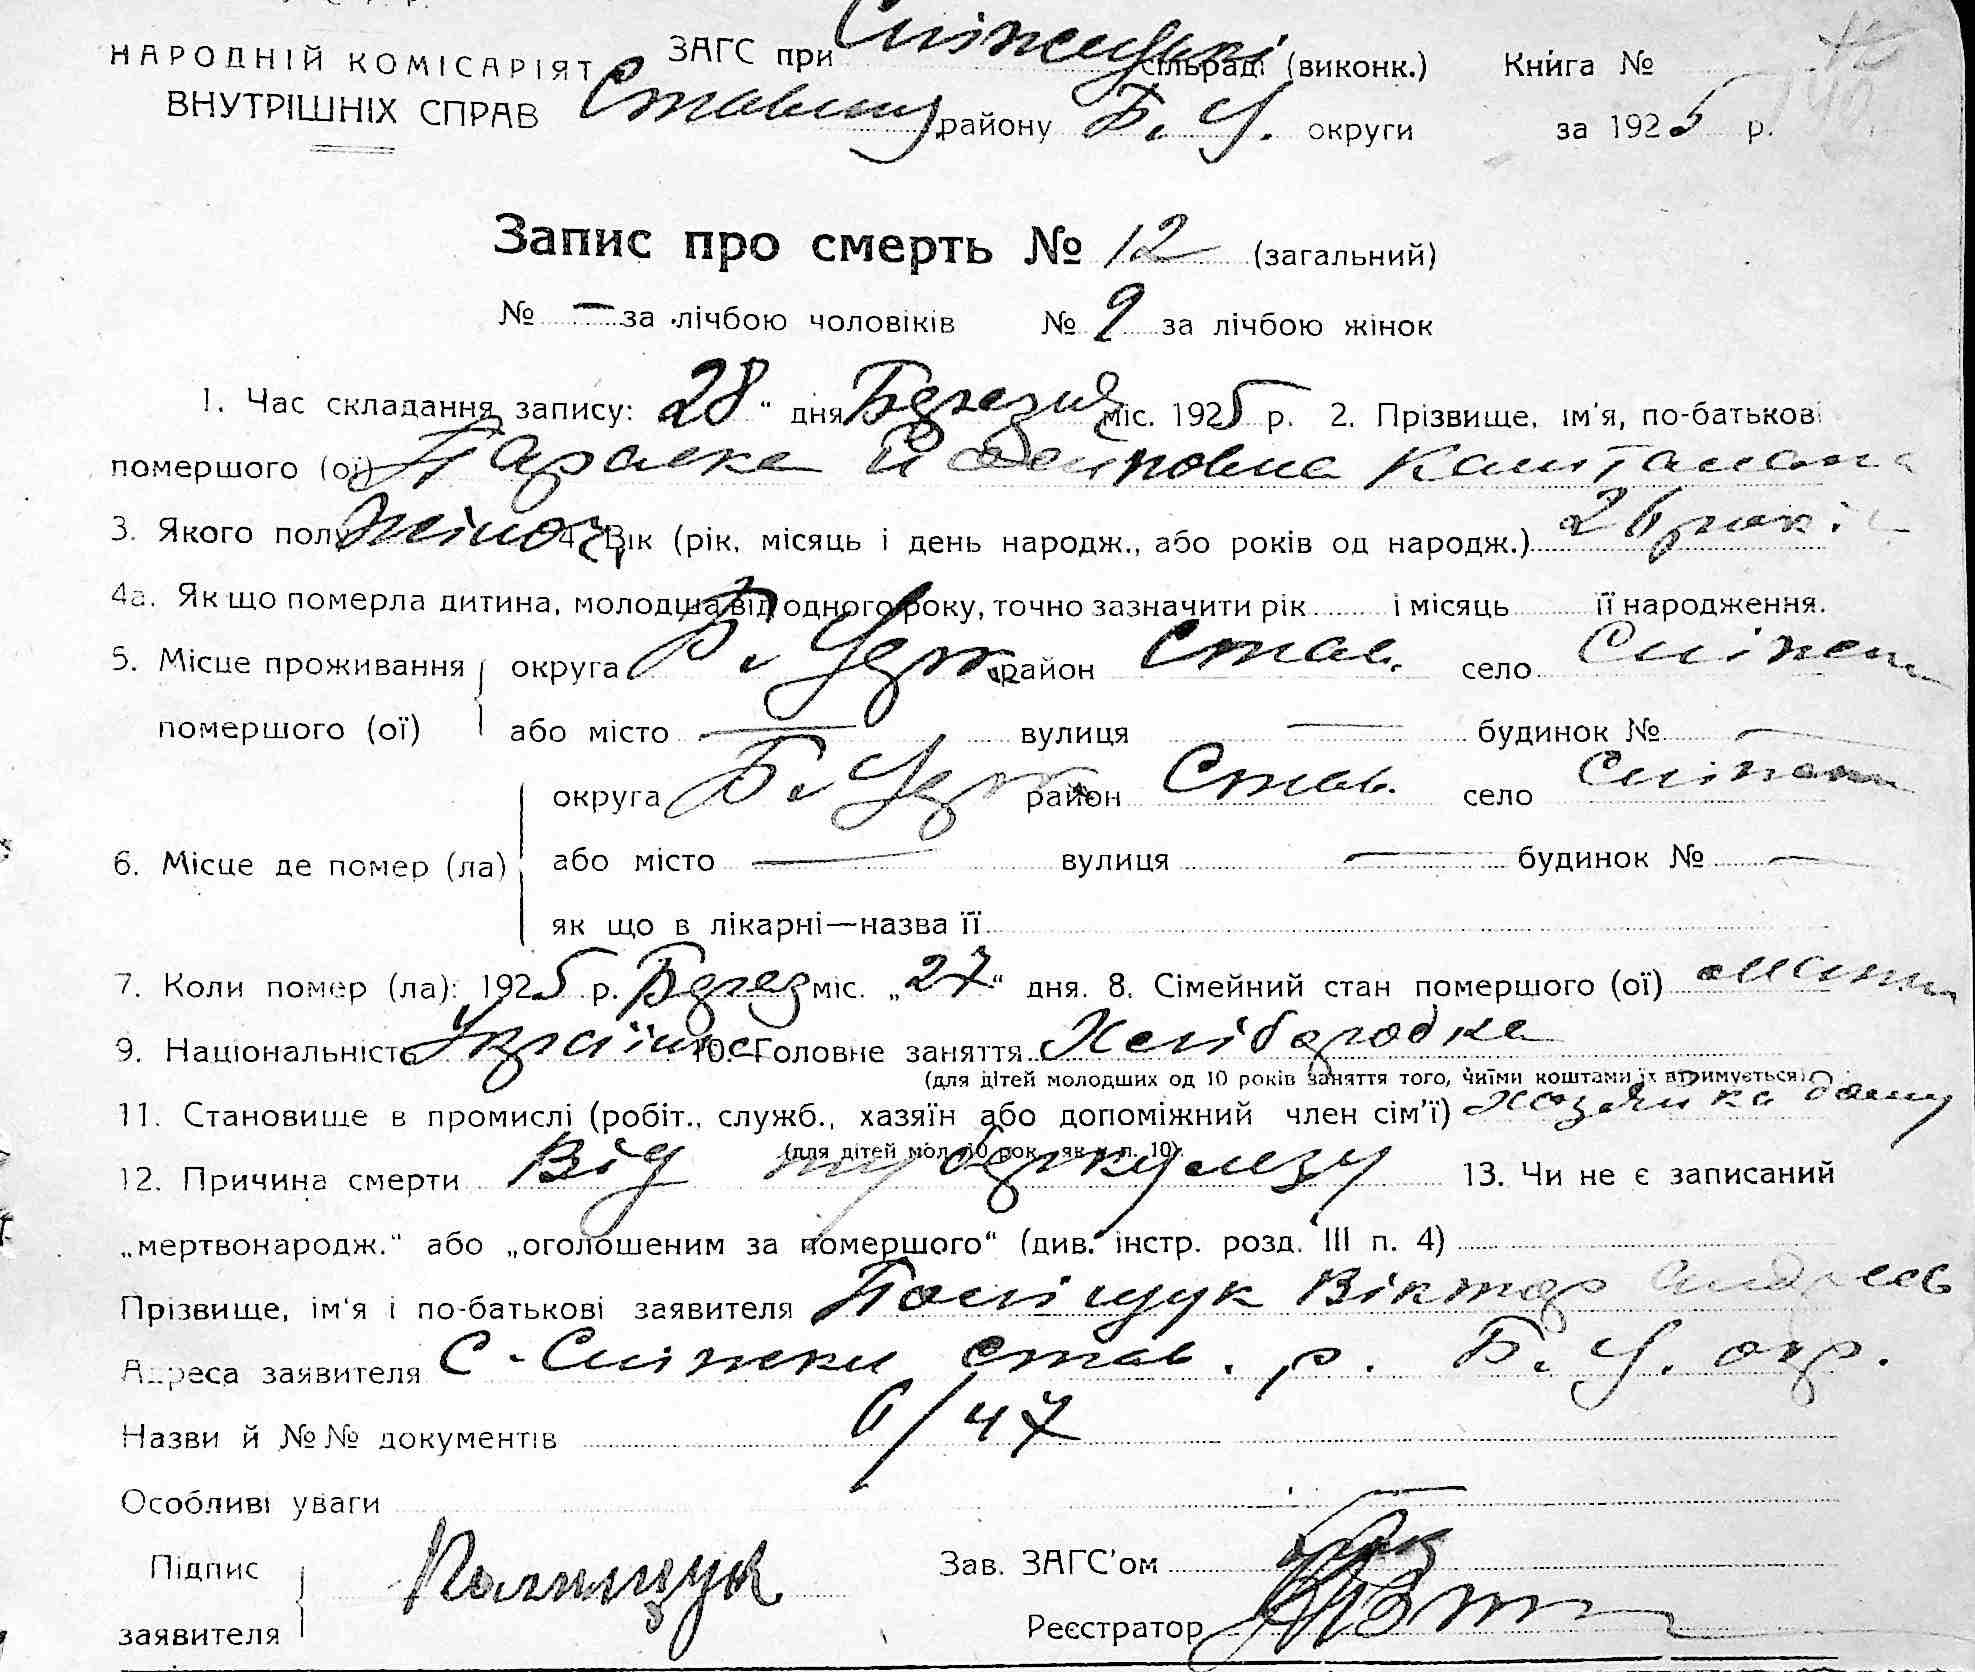 НАРОДНІЙ КОМІСАРІЯТ ЗАГС при сільраді (виконк.) Книга №
ВНУТРІШНІХ СПРАВ району Б. Ц. округи за 1925 р.
Запис про смерть № 12 (загальний)
№ — за лічбою чоловіків № 9 за лічбою жінок
1. Час складання запису: 28 " дня Березня міс. 1925 р. 2. Прізвище, ім'я, по-батькові
помершого (ої) Параска Каштанова
3. Якого полу жіноч 4. Вік (рік, місяць і день народж., або років од народж.) 26 років
4а. Як що померла дитина, молодша від одного року, точно зазначити рік і місяць її народження.
5. Місце проживання округа Б. Церк. район Став. село
помершого (ої) або місто — вулиця — будинок № —
округа Б. Церк. район Став. село
6. Місце де помер (ла) або місто — вулиця — будинок № —
як що в лікарні—назва її
7. Коли помер (ла): 1925 р. Берез міс. „27" дня. 8. Сімейний стан помершого (ої)
9. Національність Українка 10. Головне заняття Хліборобка
(для дітей молодших од 10 років заняття того, чиїми коштами їх втримується)
11. Становище в промислі (робіт., служб., хазяїн або допоміжний член сім'ї) Хозяйка дому
(для дітей мол. 10 рок., як у п. 10).
12. Причина смерти Від туберкулезу 13. Чи не є записаний
„мертвонародж." або „оголошеним за помершого" (див. інстр. розд. III п. 4)
Прізвище, ім'я і по-батькові заявителя Поліщук Віктор
Адреса заявителя С-Сніжки став. р. Б. Ц. окр.
Назви й №№ документів 6/47
Особливі уваги
Підпис Зав. ЗАГС'ом
заявителя Полищук Реєстратор